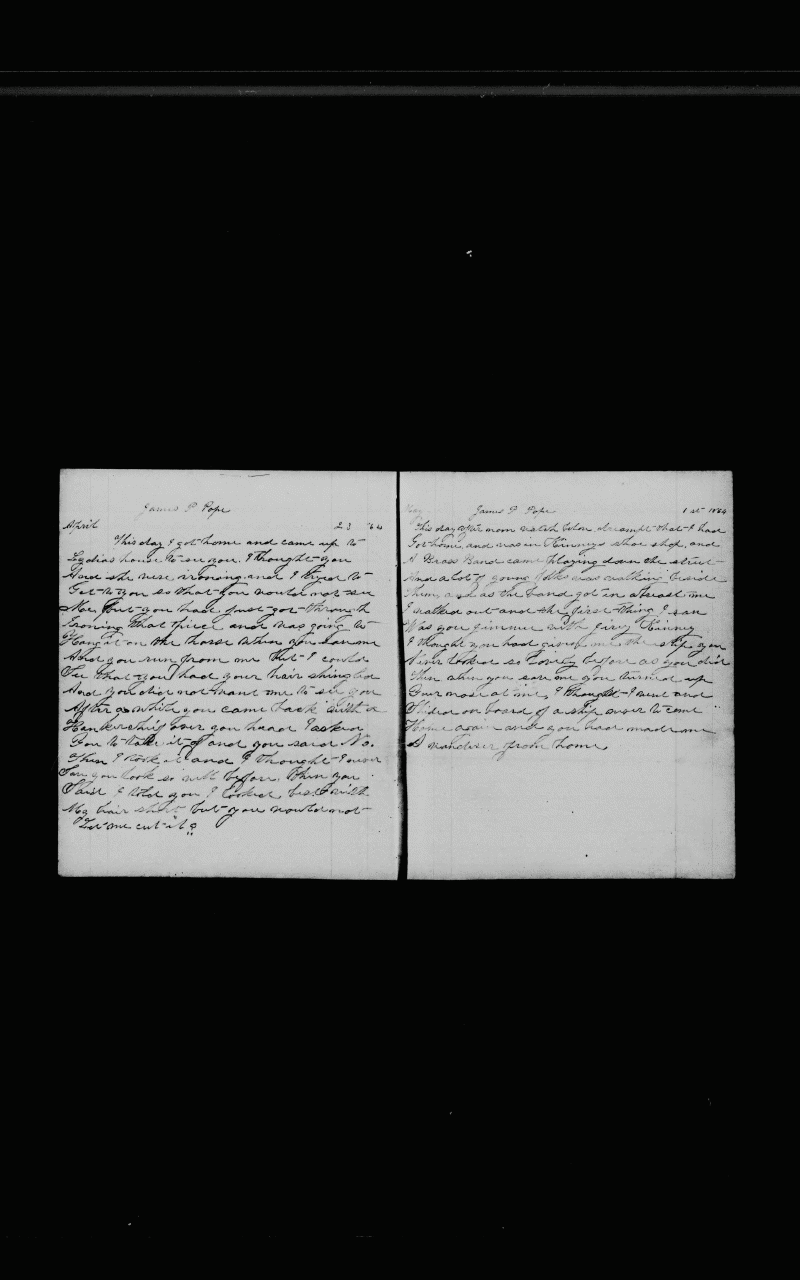 James P Pope
April 23 /64
This day I got home and came up to
Lydias house to see you. I thought you
And she were ironing and I tryed to
Get to you so that you would not see
Me, But you had just got through
Ironing that piece and was going to
Hang it on the horse when you saw me
And you run from me But I could
See that you had your hair shingled
And you did not want me to see you
After a while you came back with a
Hankerchif over you head I asked
You to take it of and you said No.
Then I took it and I thought I never
Saw you look so well before. Then you
Said I told you I looked best with
My hair short but you would not
Let me cut it
James P Pope 1 st 1864
This day after noon watch below dreampt that I had
Got home and was in Kinneys shoe shop, and
A Brass Band came playing down the street
And a lot of young folks was walkin beside
Them, and as the band got on abreast me
I walked out and the first thing I saw
Was you with Kinney
I thought you had given me the slip you
Never looked so lovely before as you did
Then when you saw me you turned up
Your nose at me, I thought I went and
on board of a ship never to come
Home again and you had made me
A wanderer from home